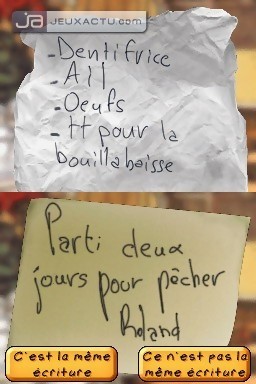 ja JEUXACTU.COM
-Dentifrice
-Ail
-Oeufs
-tt pour la
bouillabaisse
Parti deux
jours pour pêcher
Roland
C'est la même
écriture
Ce n'est pas la
même écriture